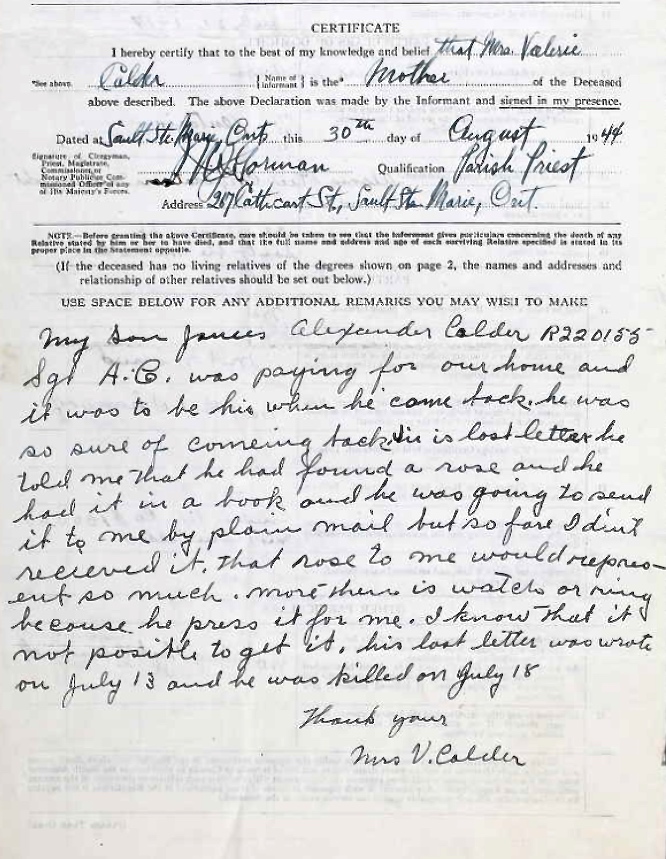 CERTIFICATE
I hereby certify that to the best of my knowledge and belief that Mrs. Valerie
*See above. Calder { Name of Informant } is the* Mother of the Deceased
above described. The above Declaration was made by the Informant and signed in my presence.
Dated at Sault Ste. Marie, Ont. this 30th day of August 1944
Signature of Clergyman,
Priest, Magistrate,
Commissioner, or
Notary Public or Com-
missioned Officer of any
of His Majesty's Forces.
Gorman Qualification Parish Priest
Address 207 Cathcart St., Sault Ste. Marie, Ont.
NOTE.—Before granting the above Certificate, care should be taken to see that the Informant gives particulars concerning the death of any
Relative stated by him or her to have died, and that the full name and address and age of each surviving Relative specified is stated in its
proper place in the Statement opposite.
(If the deceased has no living relatives of the degrees shown on page 2, the names and addresses and
relationship of other relatives should be set out below.)
USE SPACE BELOW FOR ANY ADDITIONAL REMARKS YOU MAY WISH TO MAKE
My Son James Alexander Calder R220155
Sgt A.G. was paying for our home and
it was to be his when he came back. he was
so sure of comeing back in is last letter he
told me that he had found a rose and he
had it in a book and he was going to send
it to me by plain mail but so fare I din't
recieved it. that rose to me would repres-
ent so much. more then is watch or ring
because he press it for me. I know that it
not posible to get it. his last letter was wrote
on July 13 and he was killed on July 18
Thank your
Mrs V. Calder